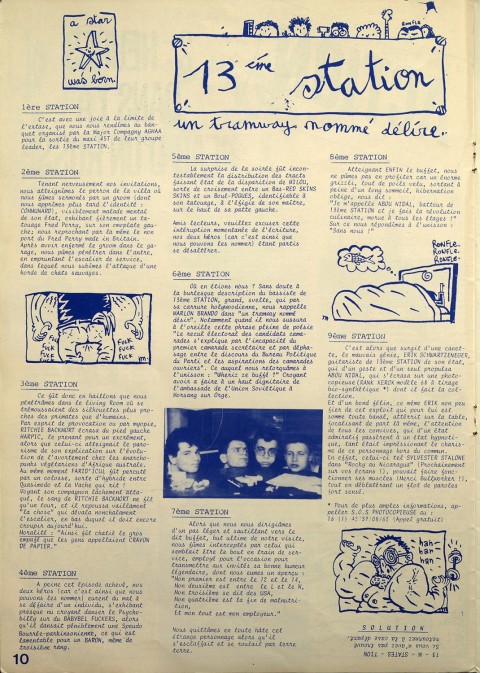 a star
was born.
RONFLE
13 ème station
un tramway nommé délire.
1ère STATION
C'est avec une joie à la limite de
l'extase, que nous nous rendîmes au ban-
quet organisé par la Major Compagny AGHAA
pour la sortie du maxi 45T de leur groupe
leader, les 13ème STATION.
2ème STATION
Tenant nerveusement nos invitations,
nous atteignîmes le perron de la villa où
nous fûmes sermonés par un groom (dont
nous apprîmes plus tard l'identité :
COMMUNARD), visiblement malade mental
de son état, exhibant fièrement un ta-
touage Fred Perry, sur son omoplate gau-
che; nous reprochant par là même le non
port du Fred Perry made in Britain.
Après avoir enfermé le groom dans la ga-
rage, nous pûmes pénétrer dans l'antre,
en empruntant l'escalier de service,
dans lequel nous subîmes l'attaque d'une
horde de chats sauvages.
FUCK
FUCK
FUCK
FUCK
FUCK
3ème STATION
Ce fût donc en haillons que nous
pénétrâmes dans le living Room où se
trémoussaient des silhouettes plus pro-
ches des primates que d'humains.
Par esprit de provocation ou par mygpie,
RITCHIE BACKHART écrasa du pied gauche
HARPIC, le prenant pour un excrément,
alors que celui-ci atteignait le paro-
xisme de son explication sur l'évolu-
tion de l'avortement chez les anarcho-
punks végétariens d'Afrique australe.
Au même moment PARIGO(oui) fût percuté
par un colosse, sorte d'hybride entre
Quasimodo et la Vache qui rit !
Voyant son compagnon lâchement atta-
qué, le sang de RITCHIE BACKHART ne fit
qu'un tour, et il repoussa vaillament
"la chose" qui dévala menchalement
l'escalier, en bas duquel il doit encore
croupir aujourd'hui.
Moralité : "Ainsi fût chatié le gros
enragé que les gens appellaient CRAYON
DE PAPIER."
4ème STATION
A peine cet épisode achevé, nos
deux héros (car c'est ainsi que nous
pouvons les nommer) eurent du mal à
se défaire d'un individu, s'exhibant
presque nu croyant dansant le Psycho-
billy sur du BABYBEL FUCKERS, alors
qu'il dansait péniblement une Speudo
Bourrée-parkinsonienne, ce qui est
lamentable pour un BARON, même de
troisième rang.
10
5ème STATION
La surprise de la soirée fût incon-
testablement la distribution des tracts
faisant état de la disparition de HILOU,
sorte de croisement entre un Bas-RED SKINS
SKINS et un Beud-POGUES, identifiable à
son tatouage, à l'égigie de son maître,
sur le haut de sa patte gauche.
Amis lecteurs, veuillez excuser cette
intéruption momentanée de l'écriture,
nos deux héros (car c'est ainsi que
nous pouvons les nommer) étant partis
se désaltérer.
6ème STATION
Où en étions nous ? Sans doute à
la burlesque description du bassiste de
13ème STATION, grand, svelte, qui par
sa carrure holywoodienne, nous rappelle
MARLON BRANDO dans "un tramway nommé
désir". Notamment quand il nous susurra
à l'oreille cette phrase pleine de poésie
"Le recul électoral des candidats camara-
des s'explique par l'incapacité du
premier camarade secrétaire et par alpha-
sage entre le discours du Bureau Politique
du Parti et les aspirations des camarades
ouvriers". Ce auquel nous rétorquâmes à
l'unisson : "Wheriz ze buffé ?" Croyant
avoir à faire à un haut dignitaire de
l'ambassade de l'Union Soviétique à
Morsang sur Orge.
7ème STATION
Alors que nous nous dirigions
d'un pas léger et sautillant vers le
dit buffet, but ultime de notre visite,
nous fûmes interceptés par celui qui
semblait être le bout en train de ser-
vice, employé pour l'occasion pour
transmettre aux invités sa bonne humeur
légendaire, dont nous eûmes un aperçu :
"Mon premier est entre le 12 et le 14,
Mon deuxième est entre le L et le N,
Mon troisième se dit des USA,
Mon quatrième est la fin de malnutri-
tion,
Et mon tout est mon employeur."
Nous quittâmes en toute hâte cet
étrange personnage alors qu'il
s'esclaffait et se roulait par terre
8ème STATION
Atteignant ENFIN le buffet, nous
ne pûmes pas en profiter car un énorme
grizzli, tout de poils velu, sortant à
peine d'un long sommeil, hibernation
oblige, nous dit :
"Je m'appelle ABOU NIDAL, batteur de
13ème STATION et je fais la révolution
culinaire, morue à tous les étages !"
Sur ce nous répondîmes à l'unisson :
"Sans nous !"
RONFLE.
RONFLE.
RONFLE.
9ème STATION
C'est alors que surgit d'une canet-
te, le mauvais génie, ERIK SCHWARTZENEGER,
guitariste de 13ème STATION de son état,
qui d'un geste et d'un seul propulsa
ABOU NIDAL, qui s'écrasa sur une photo-
copieuse (RANK XEROX modèle 63 à tirage
duo-synthétique *) dont il fait la col-
lection.
Et d'un bond félin, ce même ERIK non peu
fier de cet exploit qui pour lui est
somme toute banal, attérit sur la table,
focalisant de part là même, l'attention
de tous les convives, qui d'un état
admiratif passèrent à un état hypnoti-
que, tant était impressionnant le charis-
me de ce personnage hors du commun.
En effet, celui-ci tel SYLVESTER STALONE
dans "Rocky au Nicaragua" (Prochainement
sur vos écrans !), pouvait faire fonc-
tionner ses muscles (Merci Bullworker !),
tout en déblatérant un flot de paroles
fort sensé.
* Pour de plus amples informations, ap-
peller S.O.S PHOTOCOPIEUSE au :
16 (1) 45 39 06 61 (Appel gratuit)
han
han
han
SOLUTION
Si vous n'avez pas trouvé
retournez à la case départ.
13 - M - STATES - TION